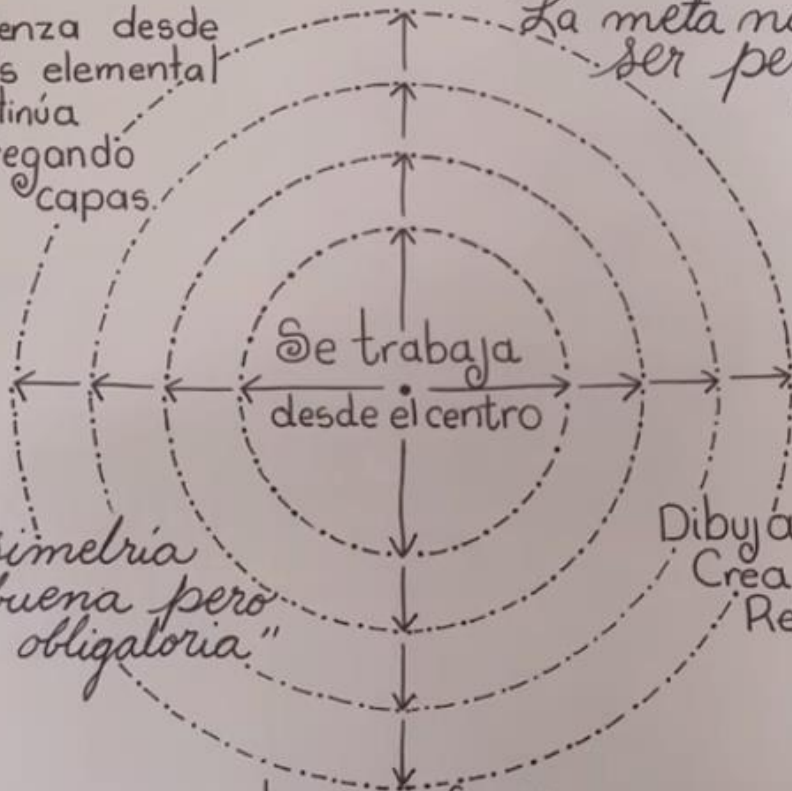 enza desde
s elemental
tinúa
egando
capas.
La meta no
ser pe
Se trabaja
desde el centro
simetría
buena pero
obligatoria"
Dibuja
Crea
Re